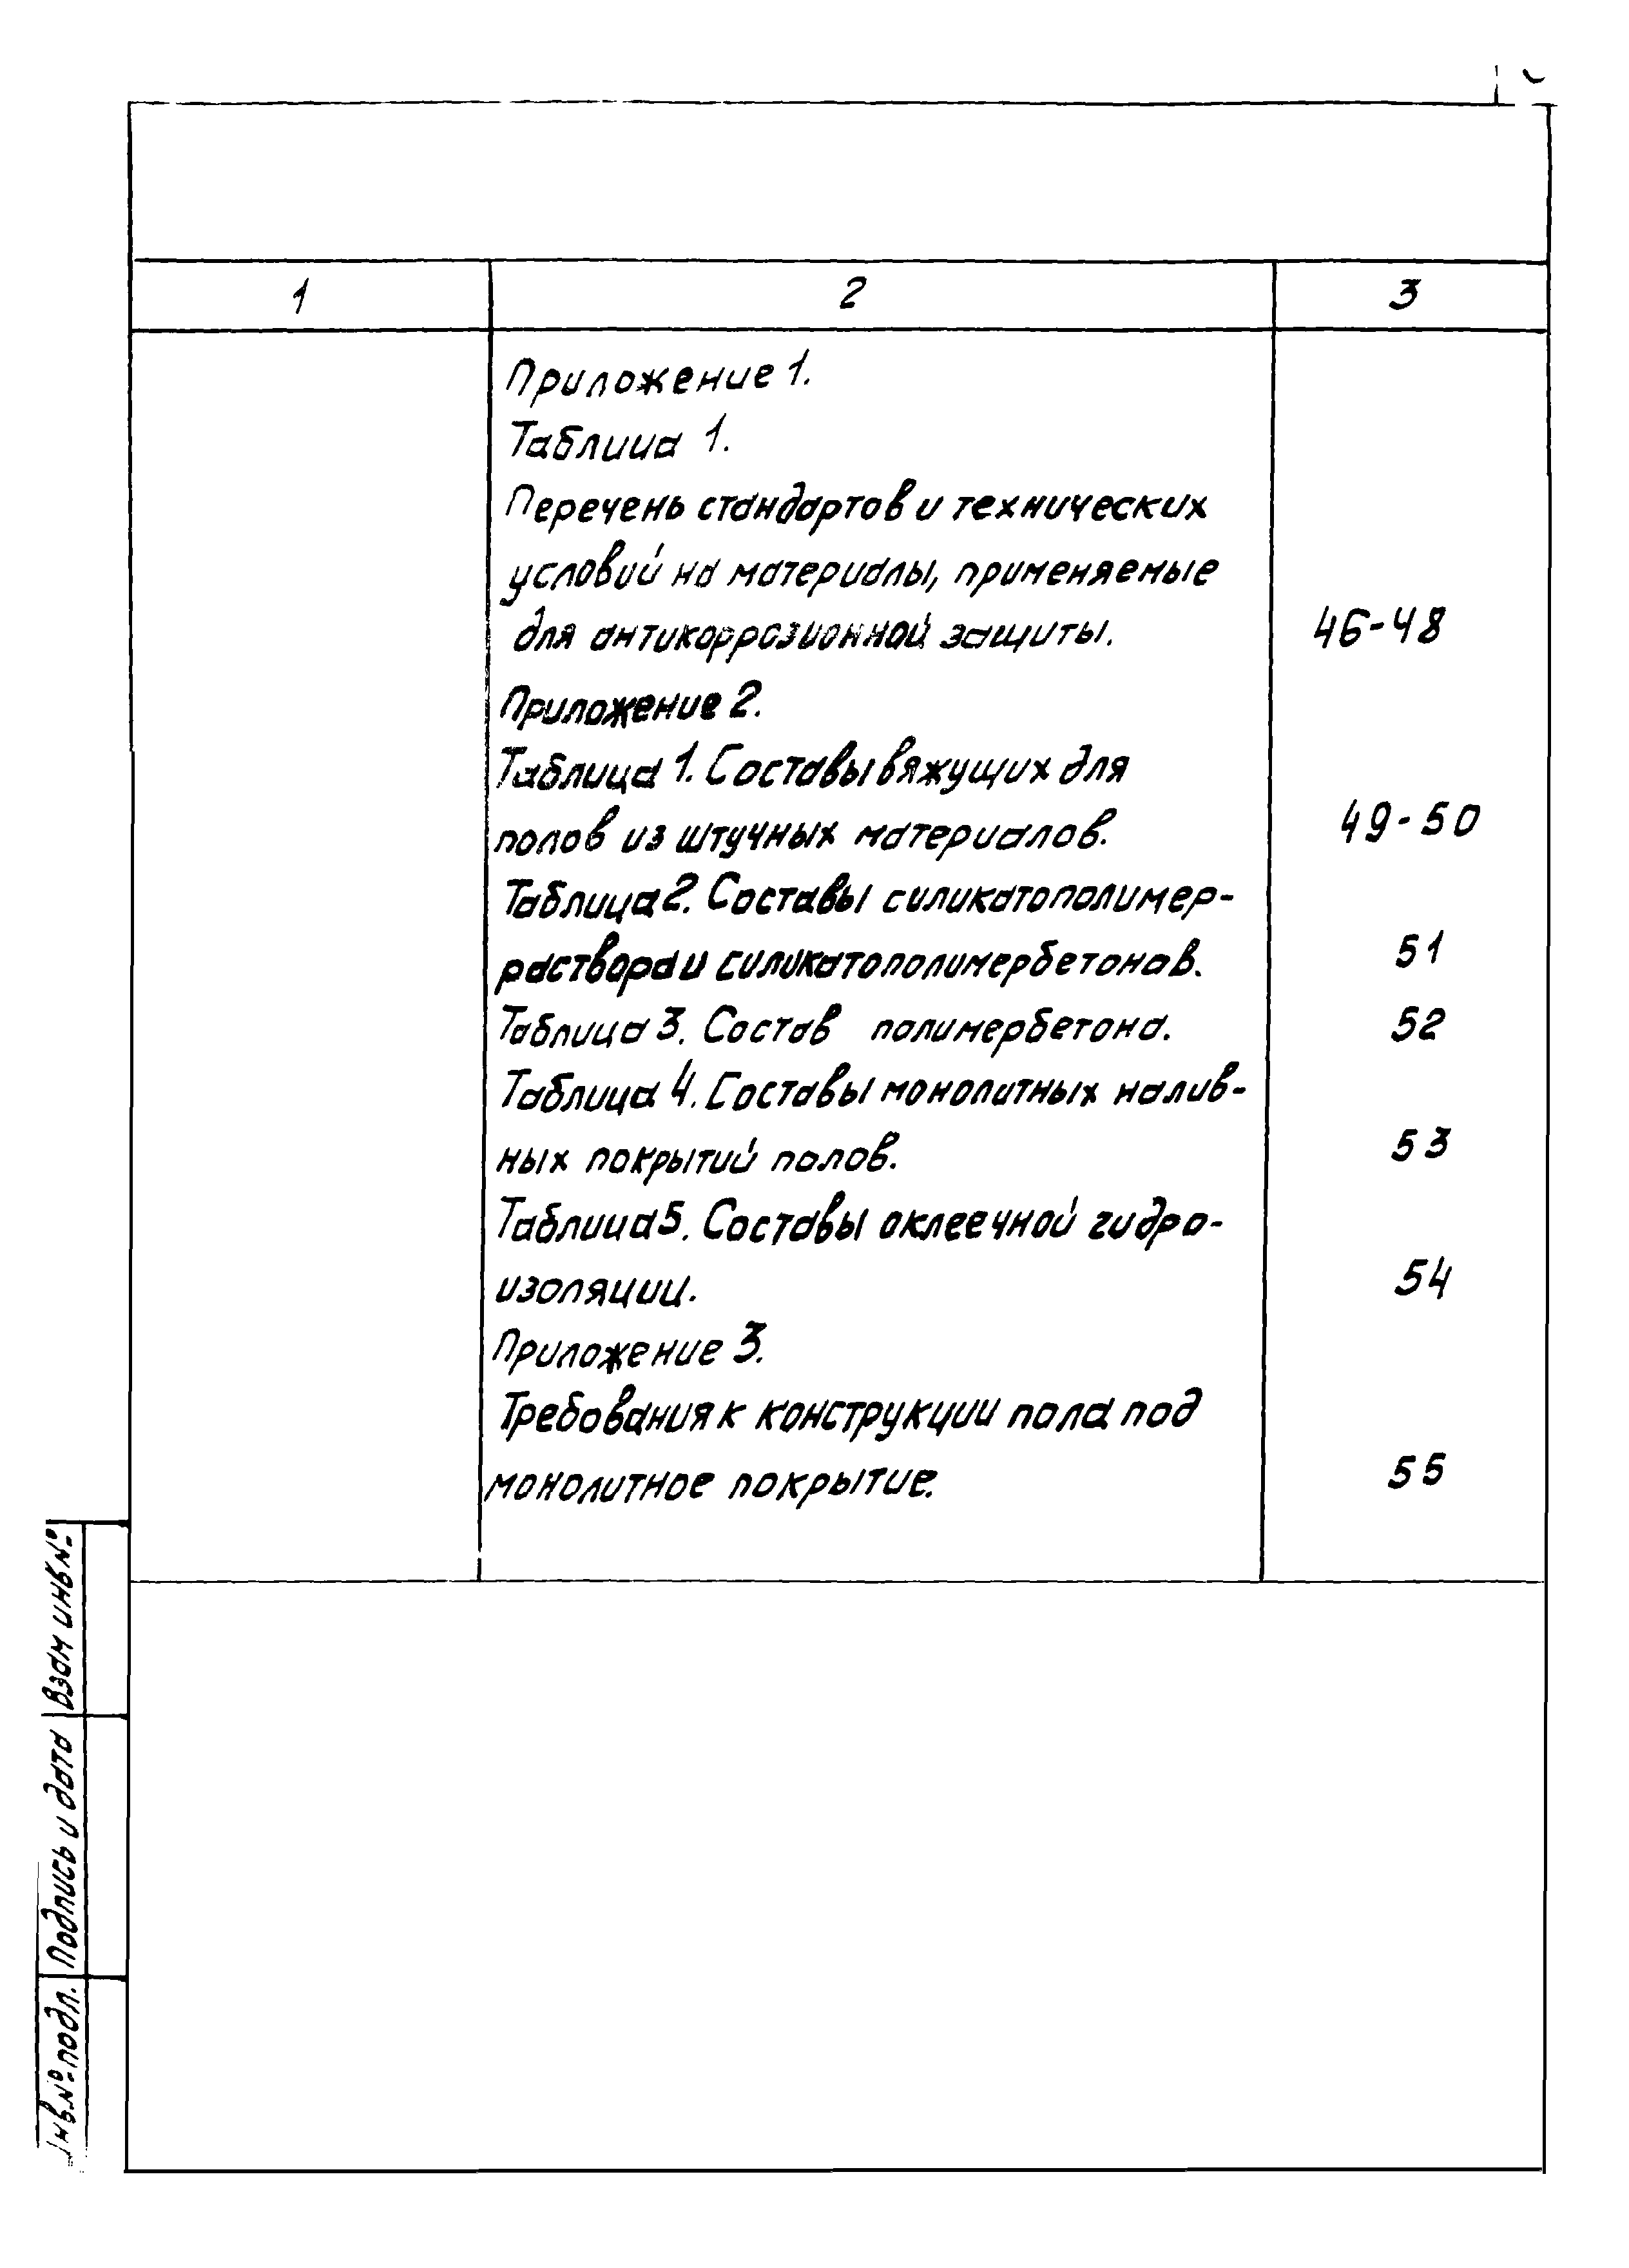 1 2 3
Приложение 1.
Таблица 1.
Перечень стандартов и технических
условий на материалы, применяемые
для антикоррозионной защиты. 46-48
Приложение 2.
Таблица 1. Составы вяжущих для
полов из штучных материалов. 49-50
Таблица 2. Составы силикатополимер-
раствора и силикатополимербетонов. 51
Таблица 3. Состав полимербетона. 52
Таблица 4. Составы монолитных налив-
ных покрытий полов. 53
Таблица 5. Составы оклеечной гидро-
изоляции. 54
Приложение 3.
Требования к конструкции пола под
монолитное покрытие. 55
Взам инв №
Подпись и дата
Инв.№ подл.